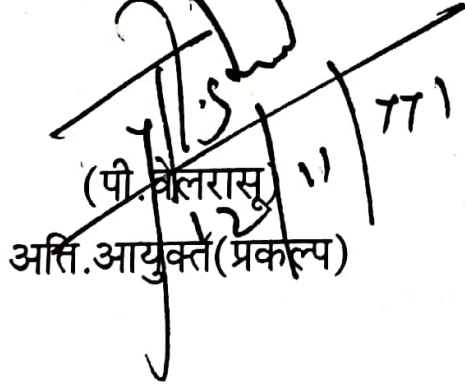 (पी.वेलरासू)
अति.आयुक्त(प्रकल्प)